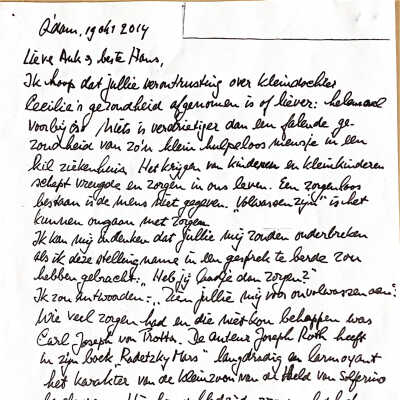 A'dam, 19 okt 2014
Lieve Ank & beste Hans,
Ik hoop dat jullie verontrusting over kleindochter
Cecilia's gezondheid afgenomen is of liever: helemaal
voorbij is. Niets is verdrietiger dan een falende ge-
zondheid van zo'n klein hulpeloos mensje in een
kil ziekenhuis. Het krijgen van kinderen en kleinkinderen
schept vreugde en zorgen in ons leven. Een zorgenloos
bestaan is de mens niet gegeven. "Volwassen zijn" is het
kunnen omgaan met zorgen.
Ik kan mij indenken dat jullie mij zouden onderbreken
als ik deze stellingname in een gesprek te berde zou
hebben gebracht: "Heb jij dan zorgen?"
Ik zou antwoorden: "Zien jullie mij voor onvolwassen aan?
Wie veel zorgen had en die niet kon behappen was
Carl Joseph von Trotta. De auteur Joseph Roth heeft
in zijn boek "Radetzky Mars" langdradig en larmoyant
het karakter van de kleinzoon van de Held van Solferino